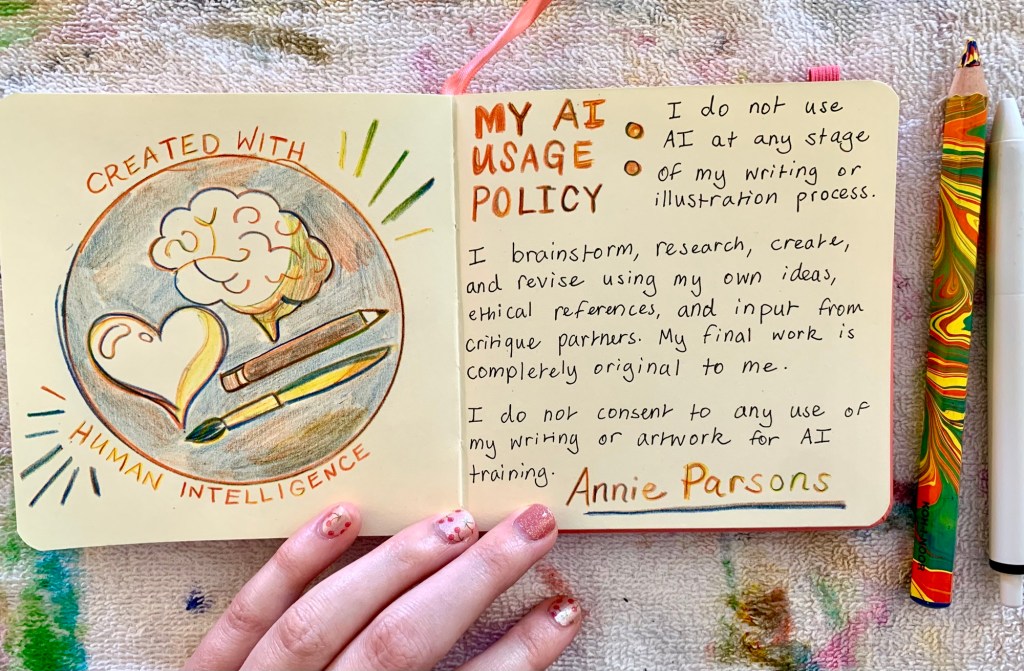 CREATED WITH
HUMAN INTELLIGENCE
MY AI
USAGE
POLICY
:
I do not use
AI at any stage
of my writing or
illustration process.
I brainstorm, research, create,
and revise using my own ideas,
ethical references, and input from
critique partners. My final work is
completely original to me.
I do not consent to any use of
my writing or artwork for AI
training.
Annie Parsons